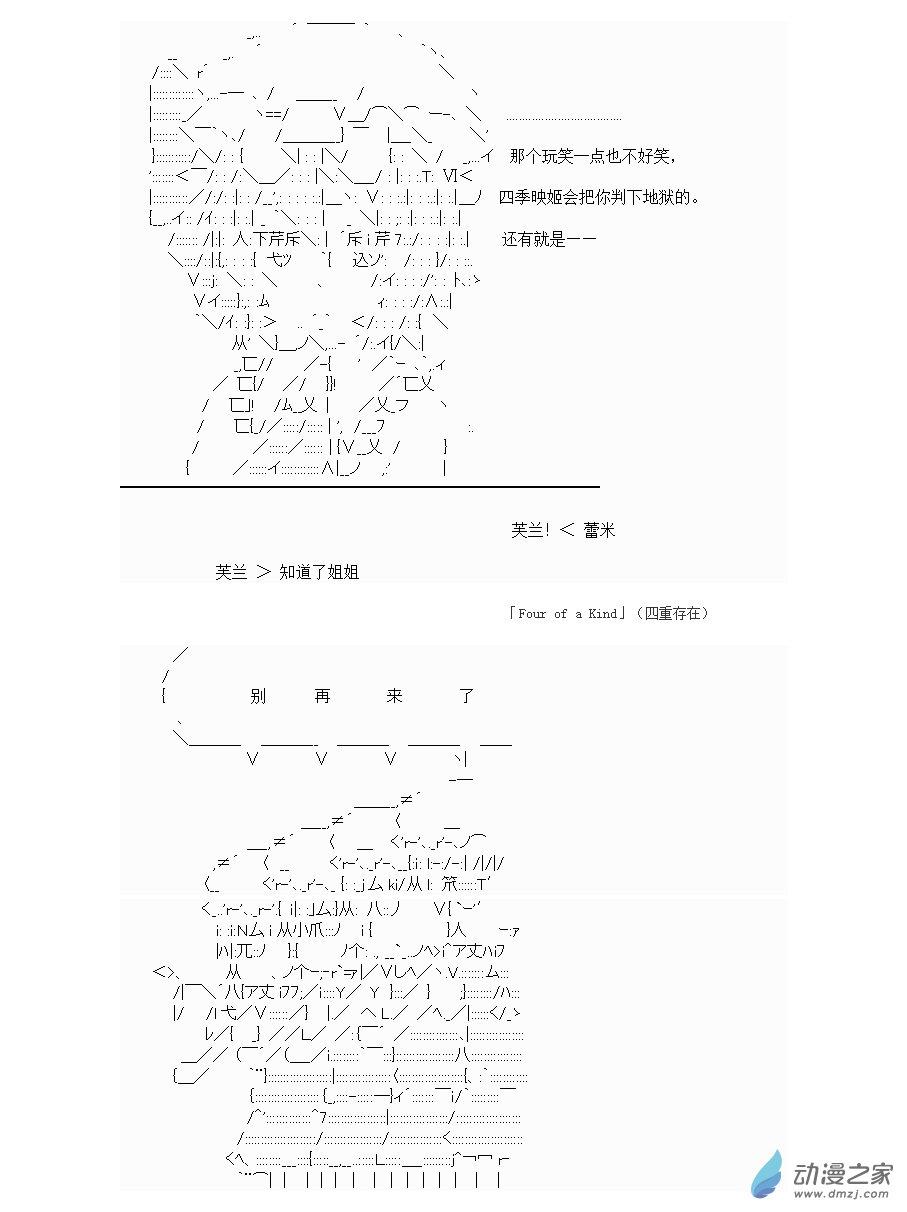 …………………………
那个玩笑一点也不好笑,
四季映姬会把你判下地狱的。
还有就是——
芙兰! < 蕾米
芙兰 > 知道了姐姐
「Four of a Kind」(四重存在)
别再来了
动漫之家
www.dmzj.com